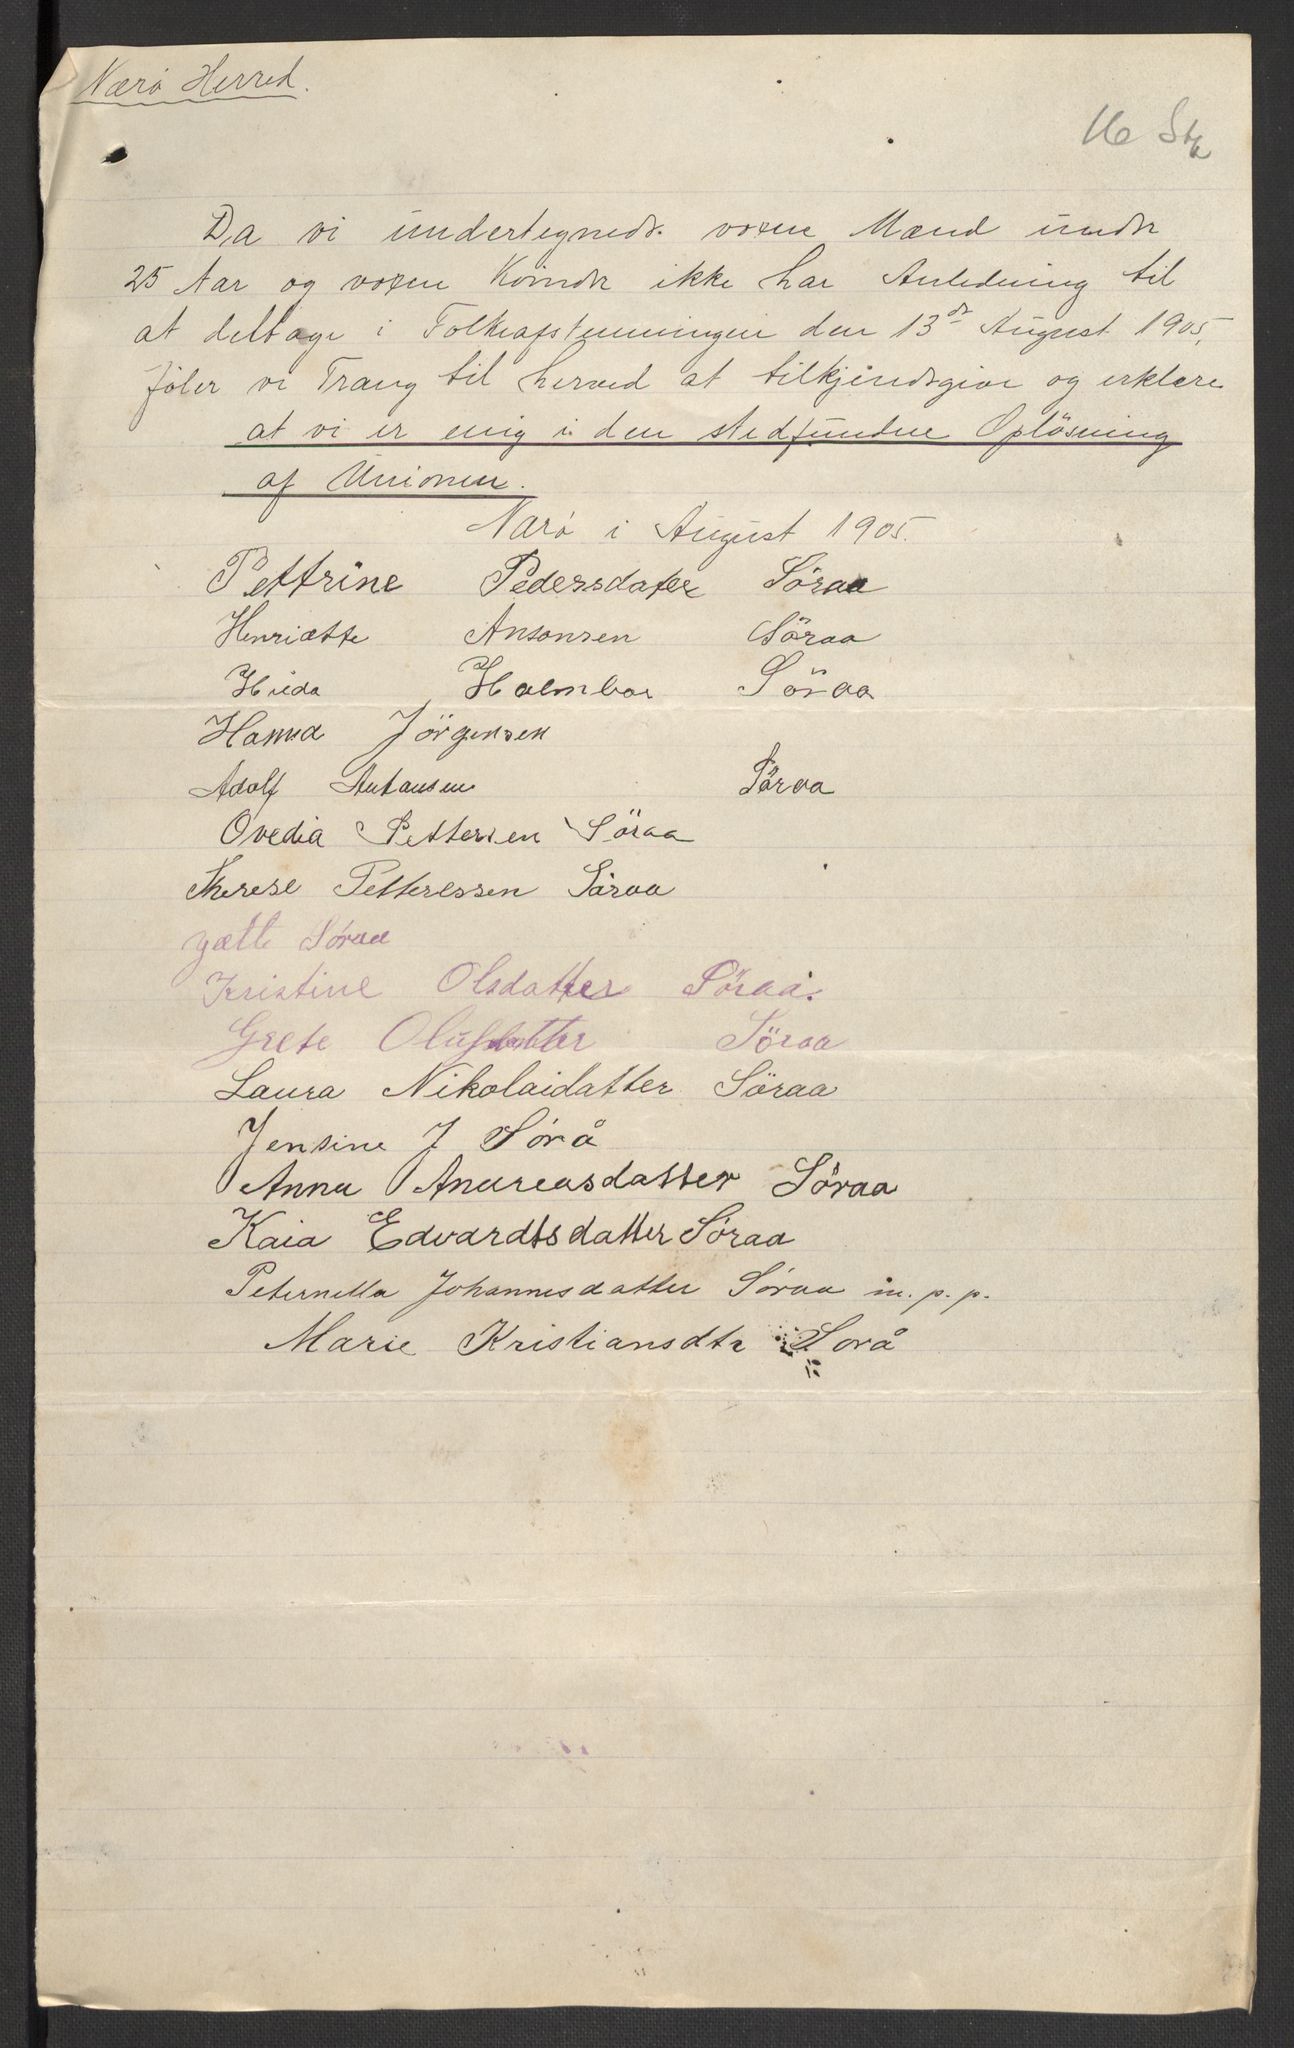 Nærø Herred.
16 Stk
Da vi undertegnede voxne Mænd under
25 Aar og voxen Kvinder ikke har Anledning til
at deltage i Folkeafstemningen den 13de August 1905,
føler vi Trang til herved at tilkjendegive og erklære
at vi er enig i den stedfundne Opløsning
af Unionen.
Nærø i August 1905.
Pettrine Pedersdater Söraa
Henriætte Antonsen Söraa
Hilda Holmboe Söraa
Hanna Jörgensen
Adolf Antonsen Söraa
Ovedia Pettersen Söraa
Therese Petteressen Söraa
Søraa
Kristine Olsdatter Söraa.
Grete Olufsdatter Söraa
Laura Nikolaidatter Söraa
Jensine J Sørå
Anna Andreasdatter Söraa
Kaia Edvardtsdatter Søraa
Peternella Johannesdatter Søraa m.p.p.
Marie Kristiansdtr Sorå